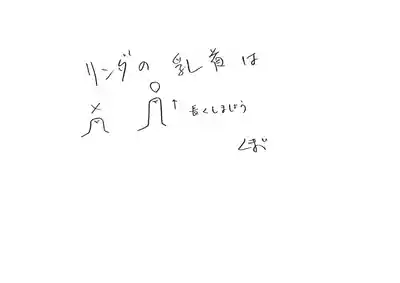 リンダの乳首は
× ○
↑ 長くしましょう
くぼ